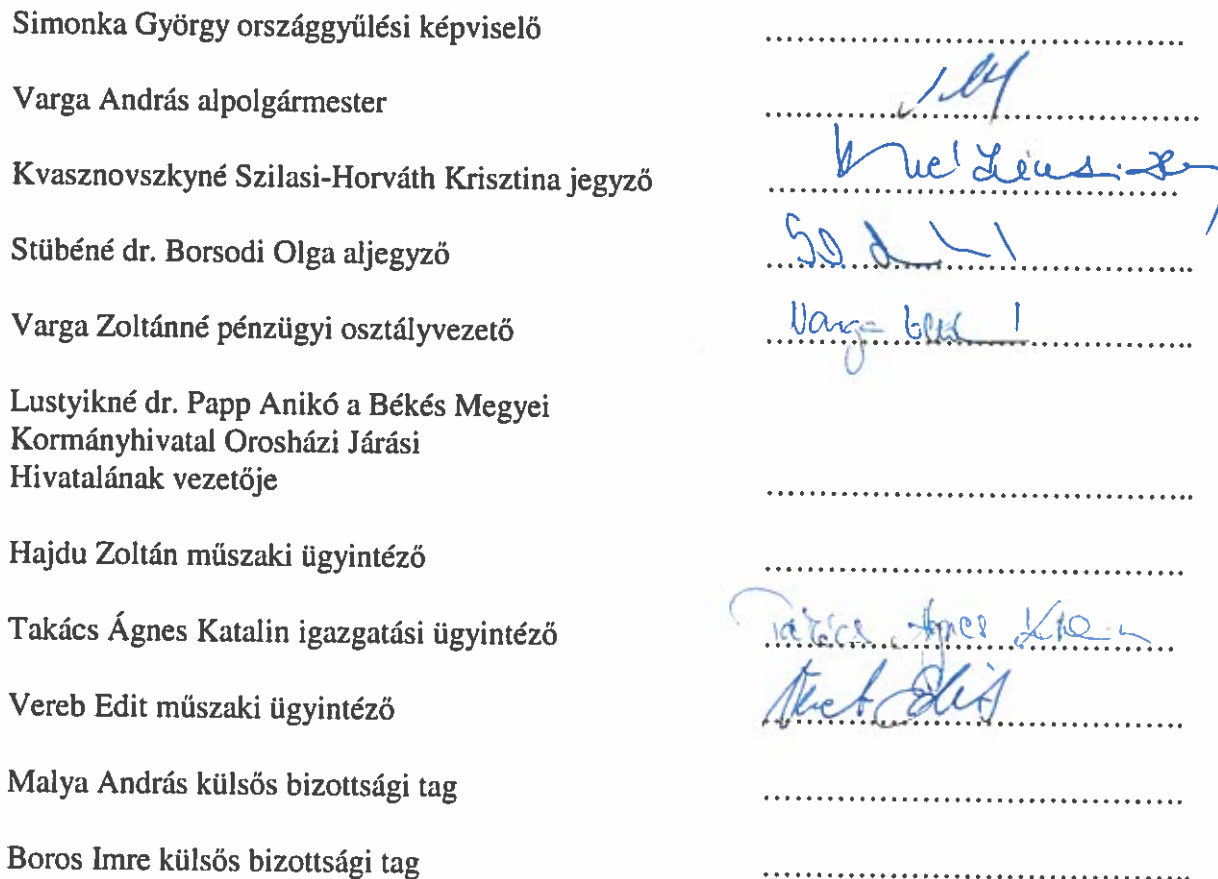 Simonka György országgyűlési képviselő ..........................................
Varga András alpolgármester ..........................................
Kvasznovszkyné Szilasi-Horváth Krisztina jegyző ..........................................
Stübéné dr. Borsodi Olga aljegyző ..........................................
Varga Zoltánné pénzügyi osztályvezető Varga
Lustyikné dr. Papp Anikó a Békés Megyei
Kormányhivatal Orosházi Járási
Hivatalának vezetője ..........................................
Hajdu Zoltán műszaki ügyintéző ..........................................
Takács Ágnes Katalin igazgatási ügyintéző Takács Ágnes Katalin
Vereb Edit műszaki ügyintéző Vereb Edit
Malya András külsős bizottsági tag ..........................................
Boros Imre külsős bizottsági tag ..........................................